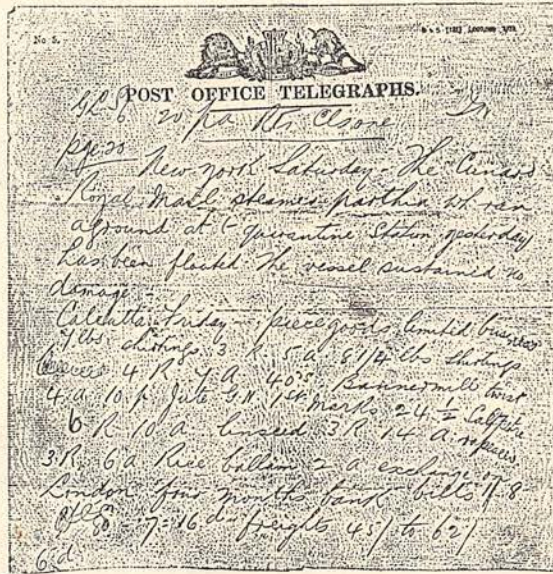 No 5.
POST OFFICE TELEGRAPHS.
20 pa
New York Saturday - The Cunard
Royal Mail steamer parthia wh ran
aground at t quarantine Station yesterday
has been floated. The vessel sustained no
damage -
Calcutta Friday - piecegoods limited business
7 lbs shirtings 3 R 5 a 8 1/4 lbs shirtings
4 R 7 a 40s Bannermill twist
4 a 10 p Jute G.N. 1st Marks 24 1/2
6 R 10 a linseed 3 R 14 a
3 R 6 a Rice ballam 2 a exchange on
London four months bank bills 1/8
7-16 d freights 45/ to 62/
6d